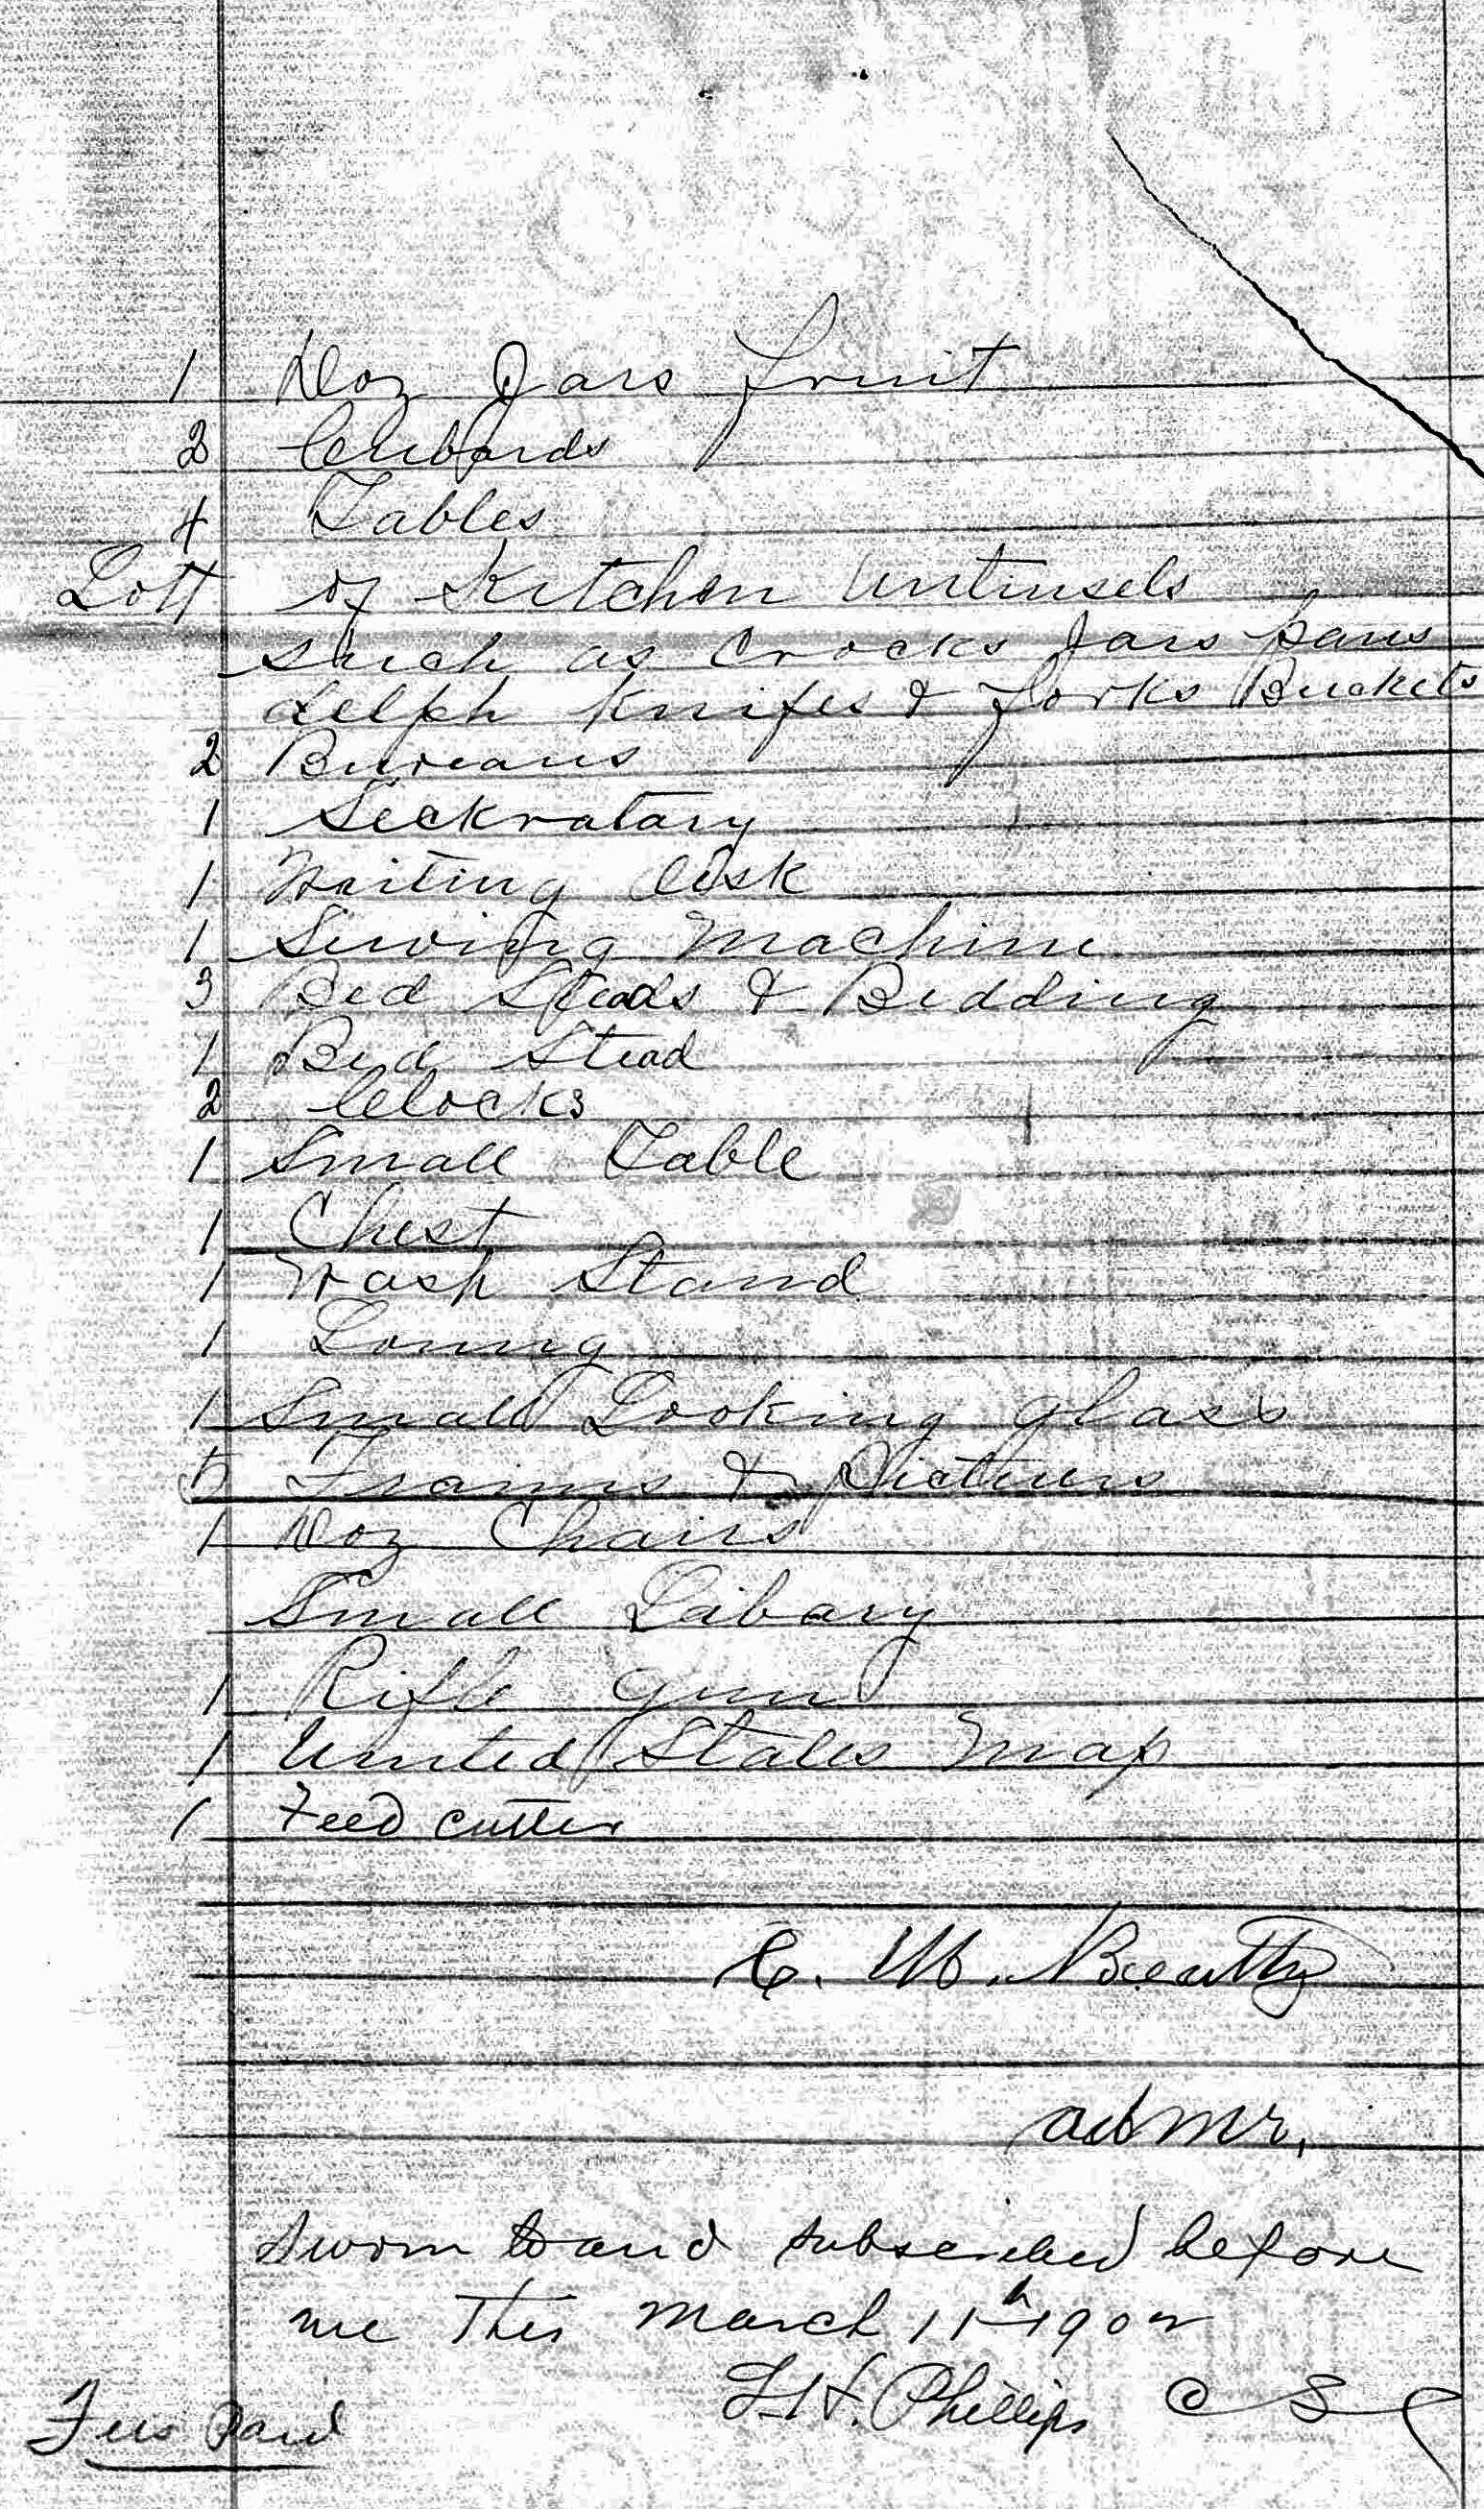 1 Doz Jars fruit
2 Cubbards
4 Tables
Lott of Kitchen Untinsels
such as Crocks Jars pans
delph Knifes & forks Buckets
2 Bureaus
1 Seckratary
1 Writing Desk
1 Sewing Machine
3 Bed Steads & Bedding
1 Bed Stead
2 Clocks
1 Small Table
1 Chest
1 Wash Stand
1 Loung
1 Small Looking glass
5 Frames & Pictures
1 Doz Chairs
Small Libary
1 Rifle gun
1 United States Map
1 Feed cutter
C. M. Beatty
admr.
Sworn to and subscribed before
me This March 11th 1902
H. Phillips C
Fees Paid